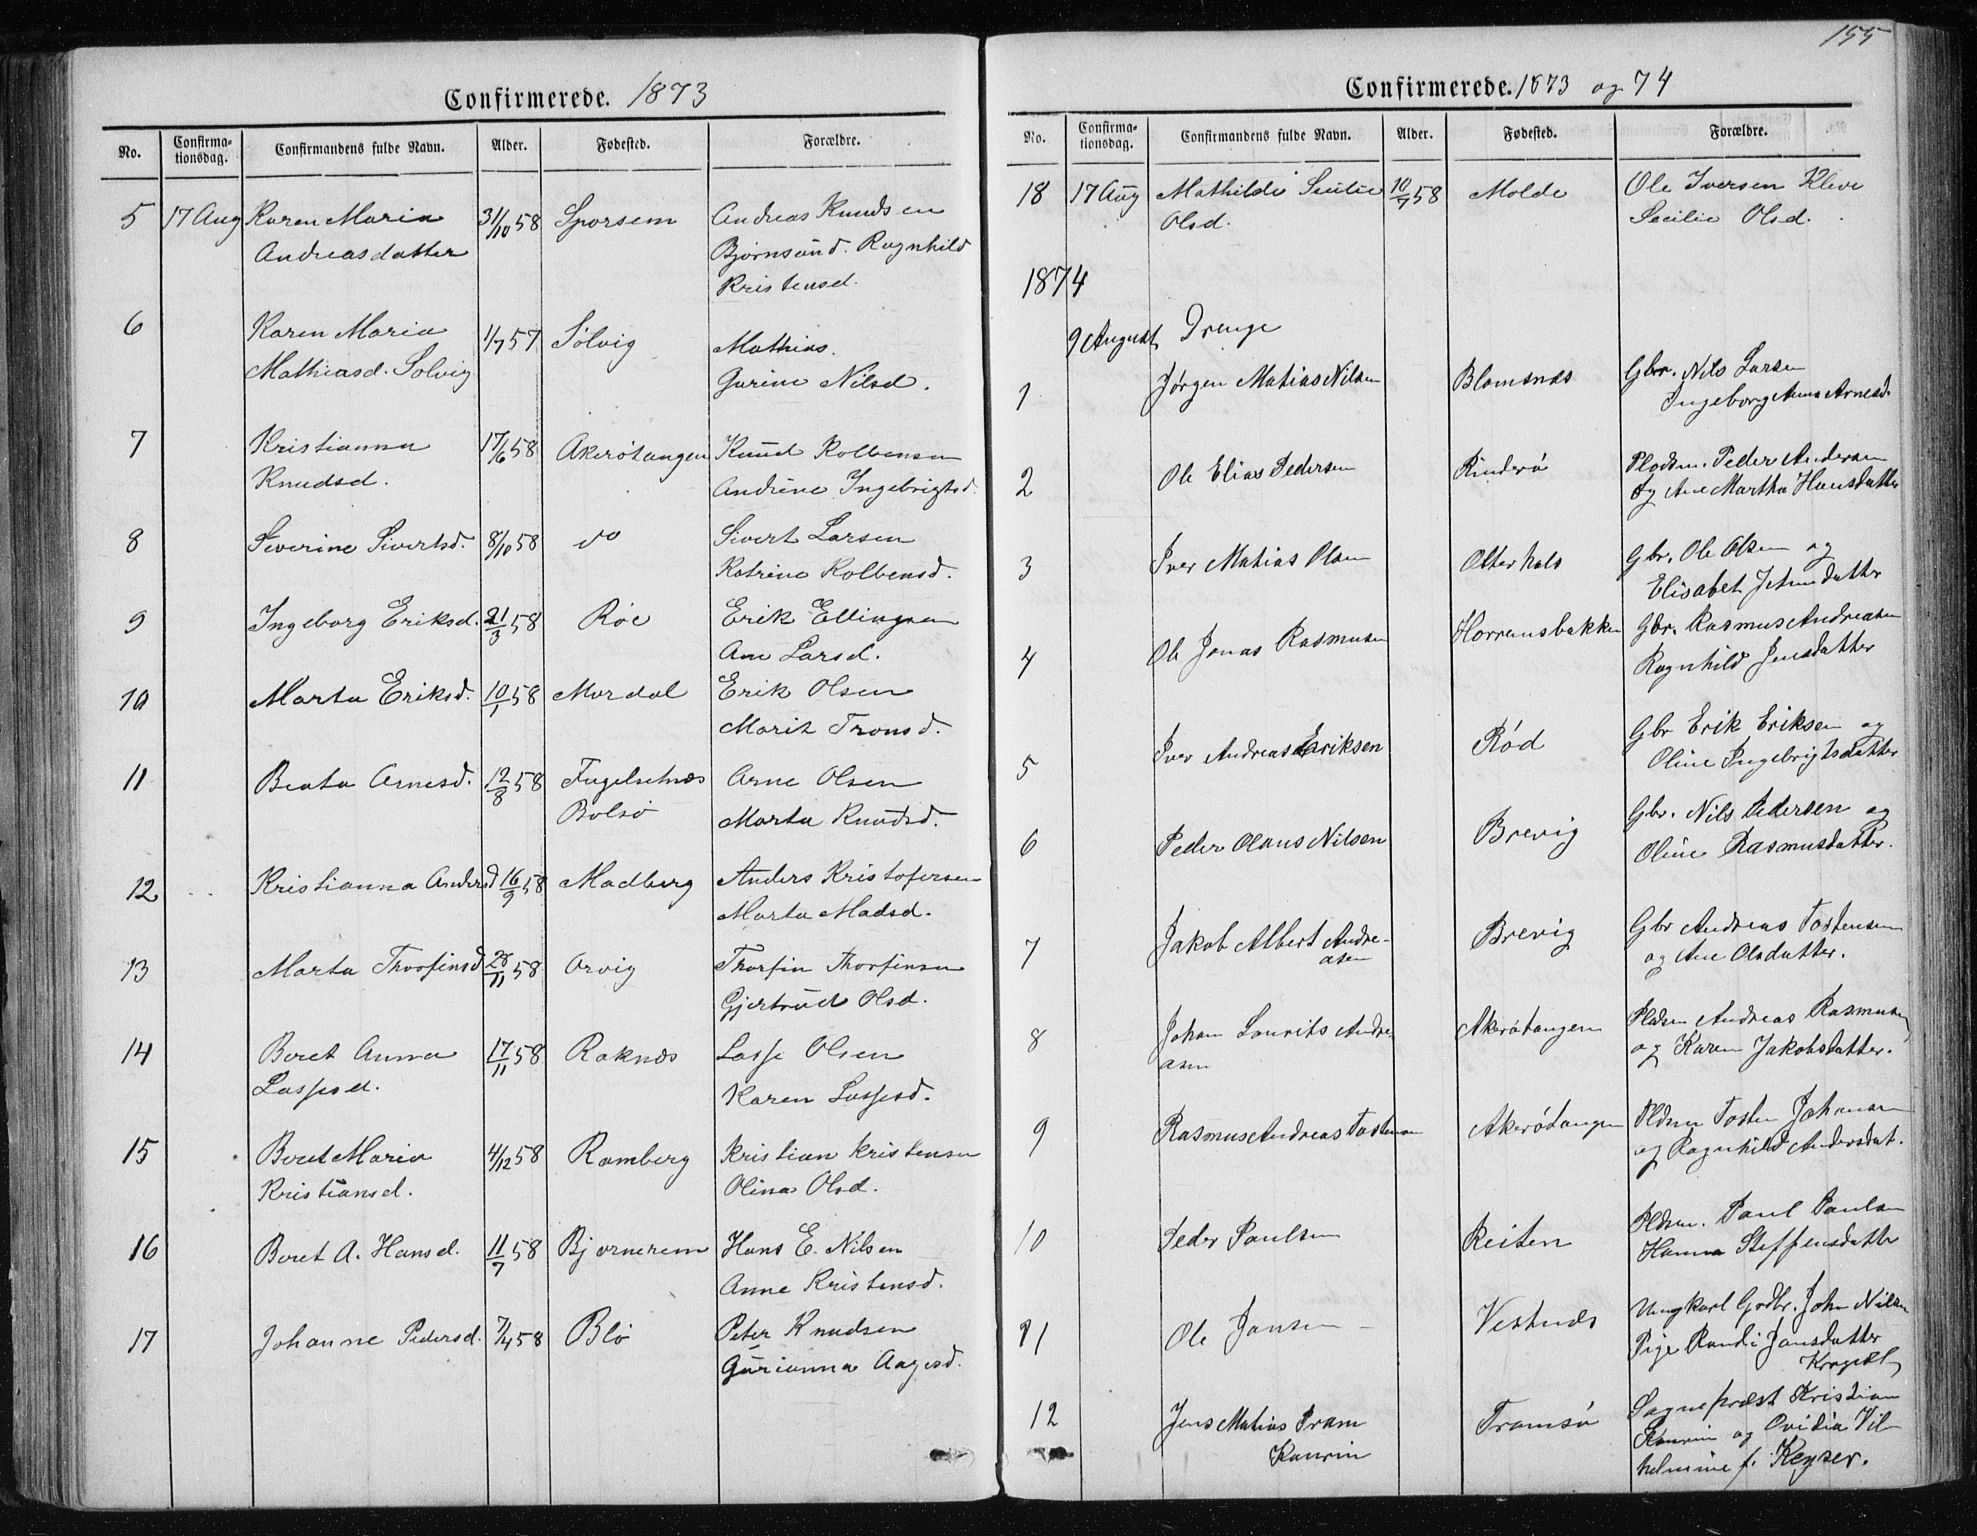 Confirmerede. 1873
No. Confirma-tionsdag. Confirmandens fulde Navn. Alder. Fødested. Forældre.
5 17 Aug Karen Maria 31/10 58 Sporsem Andreas Knudsen
Andreasdatter Bjørnsund. Ragnhild
Kristensd.
6 Karen Maria 1/7 57 Sølvig Mathias.
Mathiasd. Solvig Gurine Nilsd.
7 Kristianna 17/6 58 Akerøtangen Knud Kolbensen
Knudsd. Andrine Ingebrigtsd.
8 Severine Sivertsd. 8/10 58 do Sivert Larsen
Katrine Kolbensd.
9 Ingeborg Eriksd. 21/3 58 Røe Erik Ellingsen
Ane Larsd.
10 Marta Eriksd. 10/1 58 Mordal Erik Olsen
Marit Tronsd.
11 Beata Arnesd. 12/8 58 Fugelsetnæs Arne Olsen
Bolsø Marta Knudsd.
12 Kristianna Andersd 16/9 58 Madberg Anders Kristofersen
Marta Madsd.
13 Marta Thorfinsd 28/11 58 Orvig Thorfin Thorfinsen
Gjertrud Olsd.
14 Beret Anna 17/11 58 Raknæs Lasse Olsen
Lassesd. Karen Lassesd.
15 Beret Maria 4/12 58 Ramberg Kristian Kristensen
Kristiansd. Olina Olsd.
16 Beret A. Hansd. 11/7 58 Bjørnerem Hans E. Nilsen
Anne Kristensd.
17 Johanne Pedersd. 7/4 58 Blø Peter Knudsen
Gurianna Aagesd.
155
Confirmerede. 1873 og 74
No. Confirma-tionsdag. Confirmandens fulde Navn. Alder. Fødested. Forældre.
18 17 Aug Mathilde Secilie 10/7 58 Molde Ole Iversen Kleve
Olsd. Secilie Olsd.
1874
9 August Drenge
1 Jørgen Matias Nilsen Blomsnæs Gbr. Nils Larsen
Ingeborg Anna Arnesd.
2 Ole Elias Pedersen Rinderø Pladsm. Peder Andersen
og Ane Martha Hansdatter
3 Iver Matias Olsen Otterhals Gbr. Ole Olsen og
Elisabet Jetmundatter
4 Ole Jonas Rasmusen Horremsbakken Gbr. Rasmus Andreasen
Ragnhild Jensdatter
5 Iver Andreas Eriksen Rød Gbr Erik Eriksen og
Oline Ingebrigtsdatter
6 Peder Olaus Nilsen Brevig Gbr. Nils Pedersen og
Oline Rasmusdatter.
7 Jakob Albert Andre- Brevig Gbr Andreas Tostensen
asen og Ane Olsdatter.
8 Johan Laurits Andre- Akerøtangen Pldsm Andreas Rasmusen
asen og Karen Jakobsdatter.
9 Rasmus Andreas Tostensen Akerøtangen Pldsm Tosten Johansen
og Ragnhild Andersdat.
10 Peder Paulsen Reiten Pldsm. Paul Paulsen
Hanna Steffensdatter
11 Ole Jansen Vestnæs Ungkarl Gbr. John Nilsen
Pige Randi Jansdatter
12 Jens Matias Pram Tromsø Sognepræst Kristian
Kaurin Kaurin og Ovidia Vil-
helmine f. Keyser.